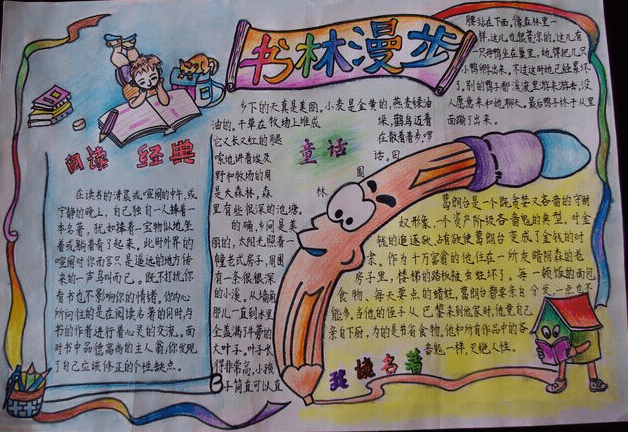 书林漫步
阅读 经典
在读书的清晨或喧闹的中午，或
宁静的晚上，自己独自一人捧着一
本名著，犹如捧着一宝物似地坐
着或躺着看了起来，此时外界的
喧闹对你而言只是遥远的地方传
来的一声鸟叫而已。既不打扰你
看书也不影响你的情绪，你内心
所向往的是在阅读名著的同时与
书的作者进行着心灵的交流。面
对书中品德高尚的主人翁，你发现
了自己应该修正的个性缺点。
童话
乡下的天真是美丽。小麦是金黄的，燕麦绿油
油的。干草在牧场上堆成垛，鹳鸟迈着
它又长又红的腿在散着步，啰
嗦地讲着埃及话。田
野和牧场的周围
是大森林，森林
里有些很深的池塘。
的确，乡间是美
丽的，太阳光照着一
幢老式房子，周围
有一条很深
的小溪。从墙角
那儿一直到水里，
全盖满了牛蒡的
大叶子。叶子长
得非常高，小孩
子简直可以直
腰站在下面，像森林里一
样，这儿也很荒凉的。这儿有
一只母鸭坐在巢里，她得把几只
小鸭孵出来。不过这时她已经累坏
了。别的鸭子都在溪流里游来游去，没
人愿意来和她聊天。最后鸭子终于从里
面蹦了出来。
我读名著
葛朗台是一个既贪婪又吝啬的守财
奴形象，一个资产阶级吝啬鬼的典型。对金
钱的追逐欲，占有欲使葛朗台变成了金钱的对
家，作为千万富翁的他，住在一所灰暗阴森的老
房子里，楼梯的踏板被虫蛀坏了。每一顿饭的面包
食物、每天要点的蜡烛，葛朗台都要亲自分发一点也不
能多，当他的侄子从巴黎来到他家时，他竟自己
亲自下厨，为的是节省食物。他和所有作品中的吝
啬鬼一样，灭绝人性。